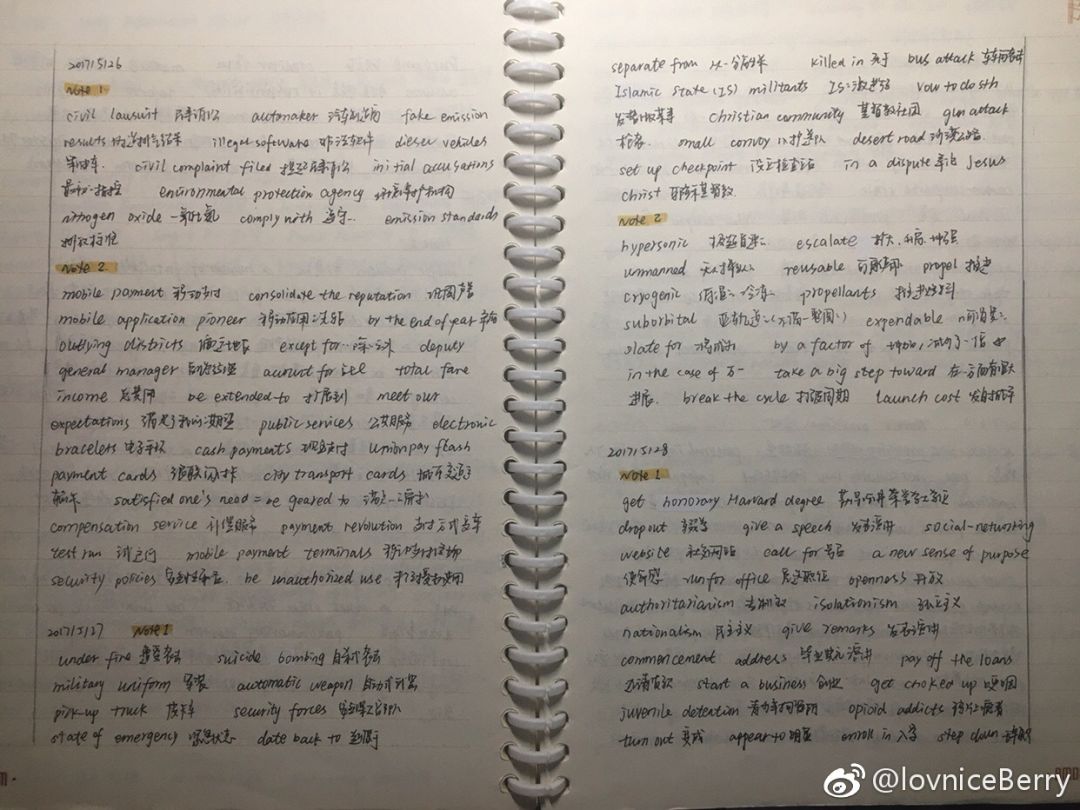 2017/5/26
Note 1.
civil lawsuit 民事诉讼 automaker 汽车制造商 fake emission
results 伪造排气结果 illegal software 非法软件 diesel vehicles
柴油车. civil complaint filed 提起民事诉讼 initial accusations
最初…指控 environmental protection agency 环境保护机构
nitrogen oxide 一氧化氮 comply with 遵守… emission standards
排放标准
Note 2.
mobile payment 移动支付 consolidate the reputation 巩固声誉
mobile application pioneer 移动应用…先驱 by the end of year 年底
outlying districts 偏远地区 except for… deputy
general manager 副总经理 account for total fare
income be extended to 扩展到 meet our
expectations 满足了我们期望 public services 公共服务 electronic
bracelets 电子手环 cash payments 现金支付 unionpay flash
payment cards 银联闪卡 city transport cards 城市交通卡
satisfied one's need = be geared to 满足…需求
compensation service 补偿服务 payment revolution 支付方式变革
test run 试运行 mobile payment terminals 移动支付终端
security policies be unauthorized use
2017/5/27 Note 1
under fire 遭受袭击 suicide bombing 自杀式袭击
military uniform 军装 automatic weapon 自动式武器
pick-up truck 皮卡车 security forces 安全部队
state of emergency 紧急状态 date back to 追溯于
separate from 从…分离 killed in 死于 bus attack 车辆袭击
Islamic state (IS) militants IS激进分子 vow to do sth
发誓做某事 Christian community 基督教社团 gun attack
枪袭. small convoy 小护送队 desert road 沙漠公路
set up checkpoint 设立检查站 in a dispute 争论 Jesus
christ 耶稣基督教
Note 2
hypersonic 极超音速… escalate 扩大,升高,增强
unmanned 无人操纵 reusable 可重复用 propel 推进
cryogenic 低温…冷冻… propellants 推进燃料
suborbital 亚轨道…(不满一整圈…) expendable 可消耗…
slate for by a factor of
in the case of 万一 take a big step toward 在…方面有很大
进展. break the cycle 打破周期 launch cost 发射成本
2017/5/28
Note 1
get honorary Harvard degree 获得哈佛荣誉学位
dropout 辍学 give a speech 发表演讲 social-networking
website 社交网站 call for 号召 a new sense of purpose
使命感 run for office 竞选职位 openness 开放
authoritarianism 专制主义 isolationism 孤立主义
nationalism 民主主义 give remarks 发表演讲
commencement address 毕业典礼演讲 pay off the loans
还清贷款 start a business 创业 get choked up 哽咽
juvenile detention 青少年拘留所 opioid addicts 鸦片上瘾者
turn out 变成 appear to 明显 enroll in 入学 step down 辞职
@lovniceBerry